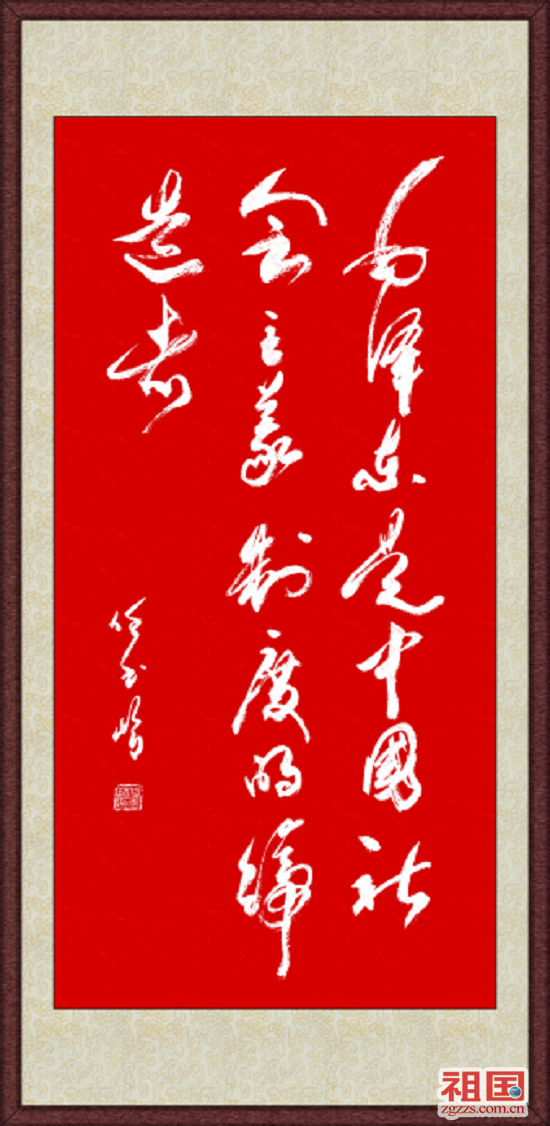 毛泽东是中国社
会主义制度的缔
造者
任玉岭
祖国
zgzzs.com.cn